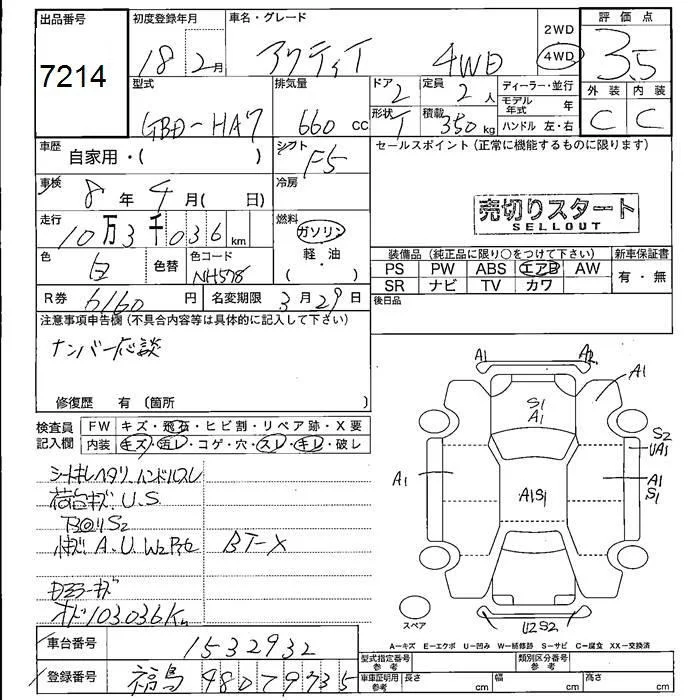 出品番号 初度登録年月 車名・グレード 評価点
7214 18 2月 アクティT 4WD 2WD 4WD 3.5
外装 内装
C C
型式 排気量 ドア 定員 ディーラー・並行
GBD-HA7 660 cc 2 2人 モデル年式 年
形状 積載 ハンドル 左・右
T 350kg
車歴 自家用・( ) シフト F5 セールスポイント(正常に機能するものに限ります)
車検 8年 4月( 日) 冷房
売切りスタート
SELLOUT
走行 10万3千036km 燃料 ガソリン
軽・油
・( )
色 白 色替 色コード NH578
装備品(純正品に限り○をつけて下さい) 新車保証書
PS PW ABS エアB AW 有・無
SR ナビ TV カワ
R券 6160円 名変期限 3月29日 後日品
注意事項申告欄(不具合内容等は具体的に記入して下さい)
ナンバー応談
修復歴 有(箇所 )
検査員記入欄 FW キズ・飛石・ヒビ割・リペア跡・X要
内装 キズ・汚レ・コゲ・穴・スレ・キレ・破レ
シートキレヘタリ ハンドルスレ
荷台キズ.U.S
S2
A.U.W2 BT-X
ドアミラーキズ
オド103,036Km
A1 A2
A1
S1
A1
S2
UA1
A1 A1S1 A1
S1
U2S2
スペア
A-キズ E-エクボ U-凹み W-補修跡 S-サビ C-腐食 XX-交換済
車台番号 1532932
登録番号 福島 480 7935
型式指定番号 参考 類別区分番号 参考
車庫証明用 参考 長さ cm 幅 cm 高さ cm